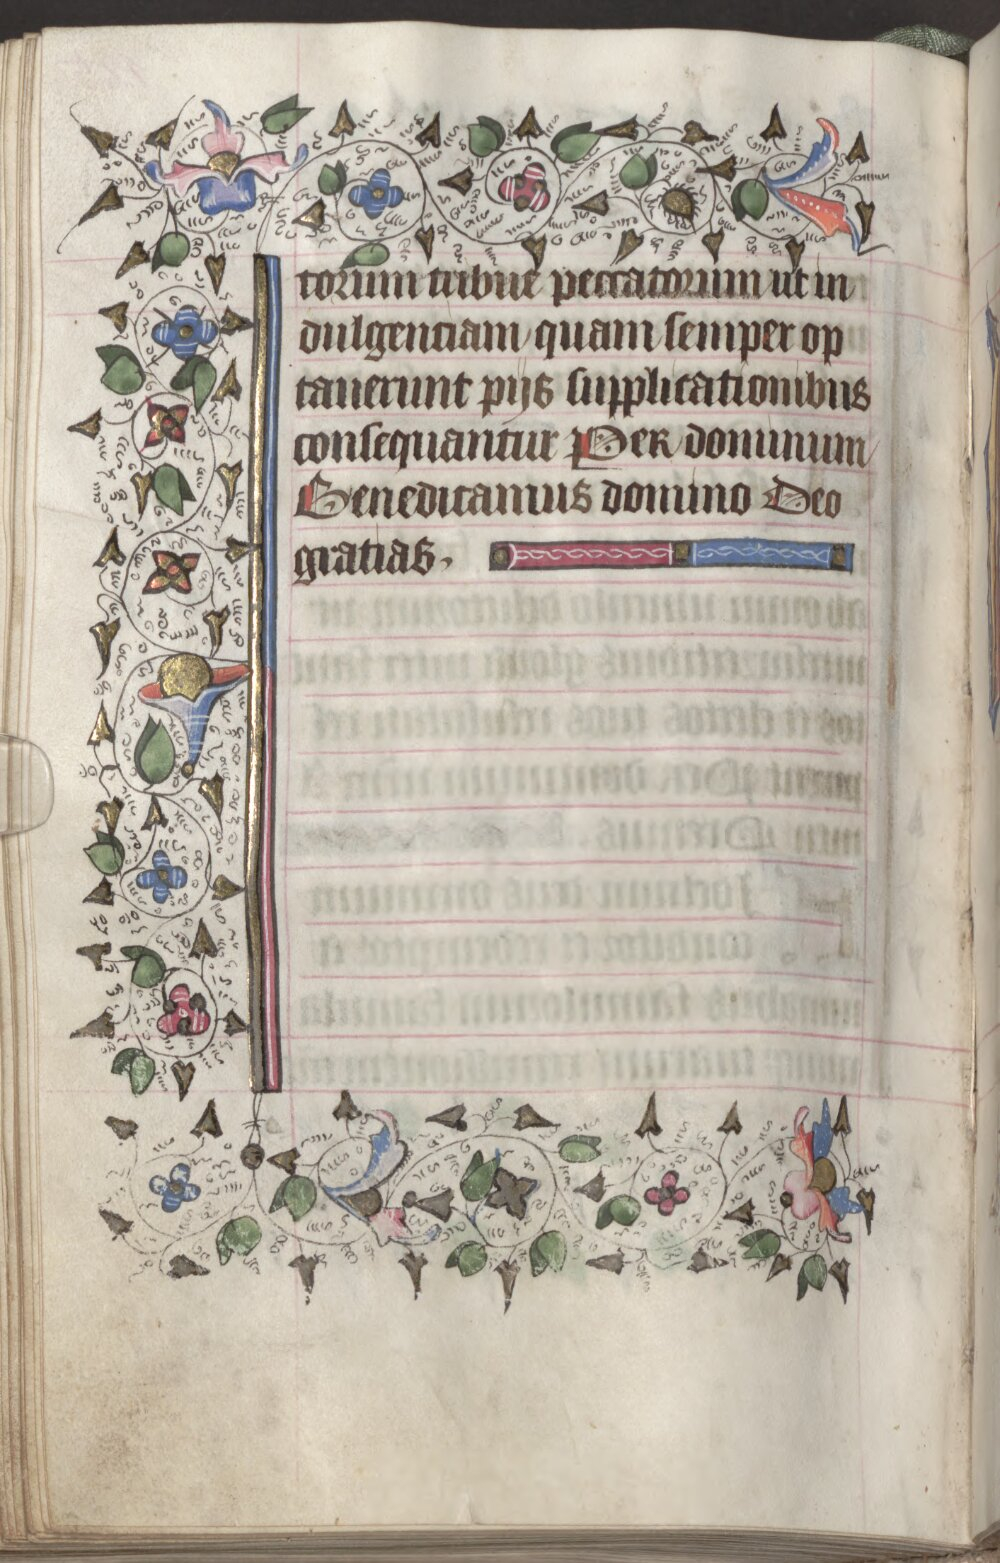 torum tribue peccatorum ut in
dulgenciam quam semper op
tauerunt pijs supplicationibus
consequantur Per dominum
Benedicamus domino Deo
gratias.